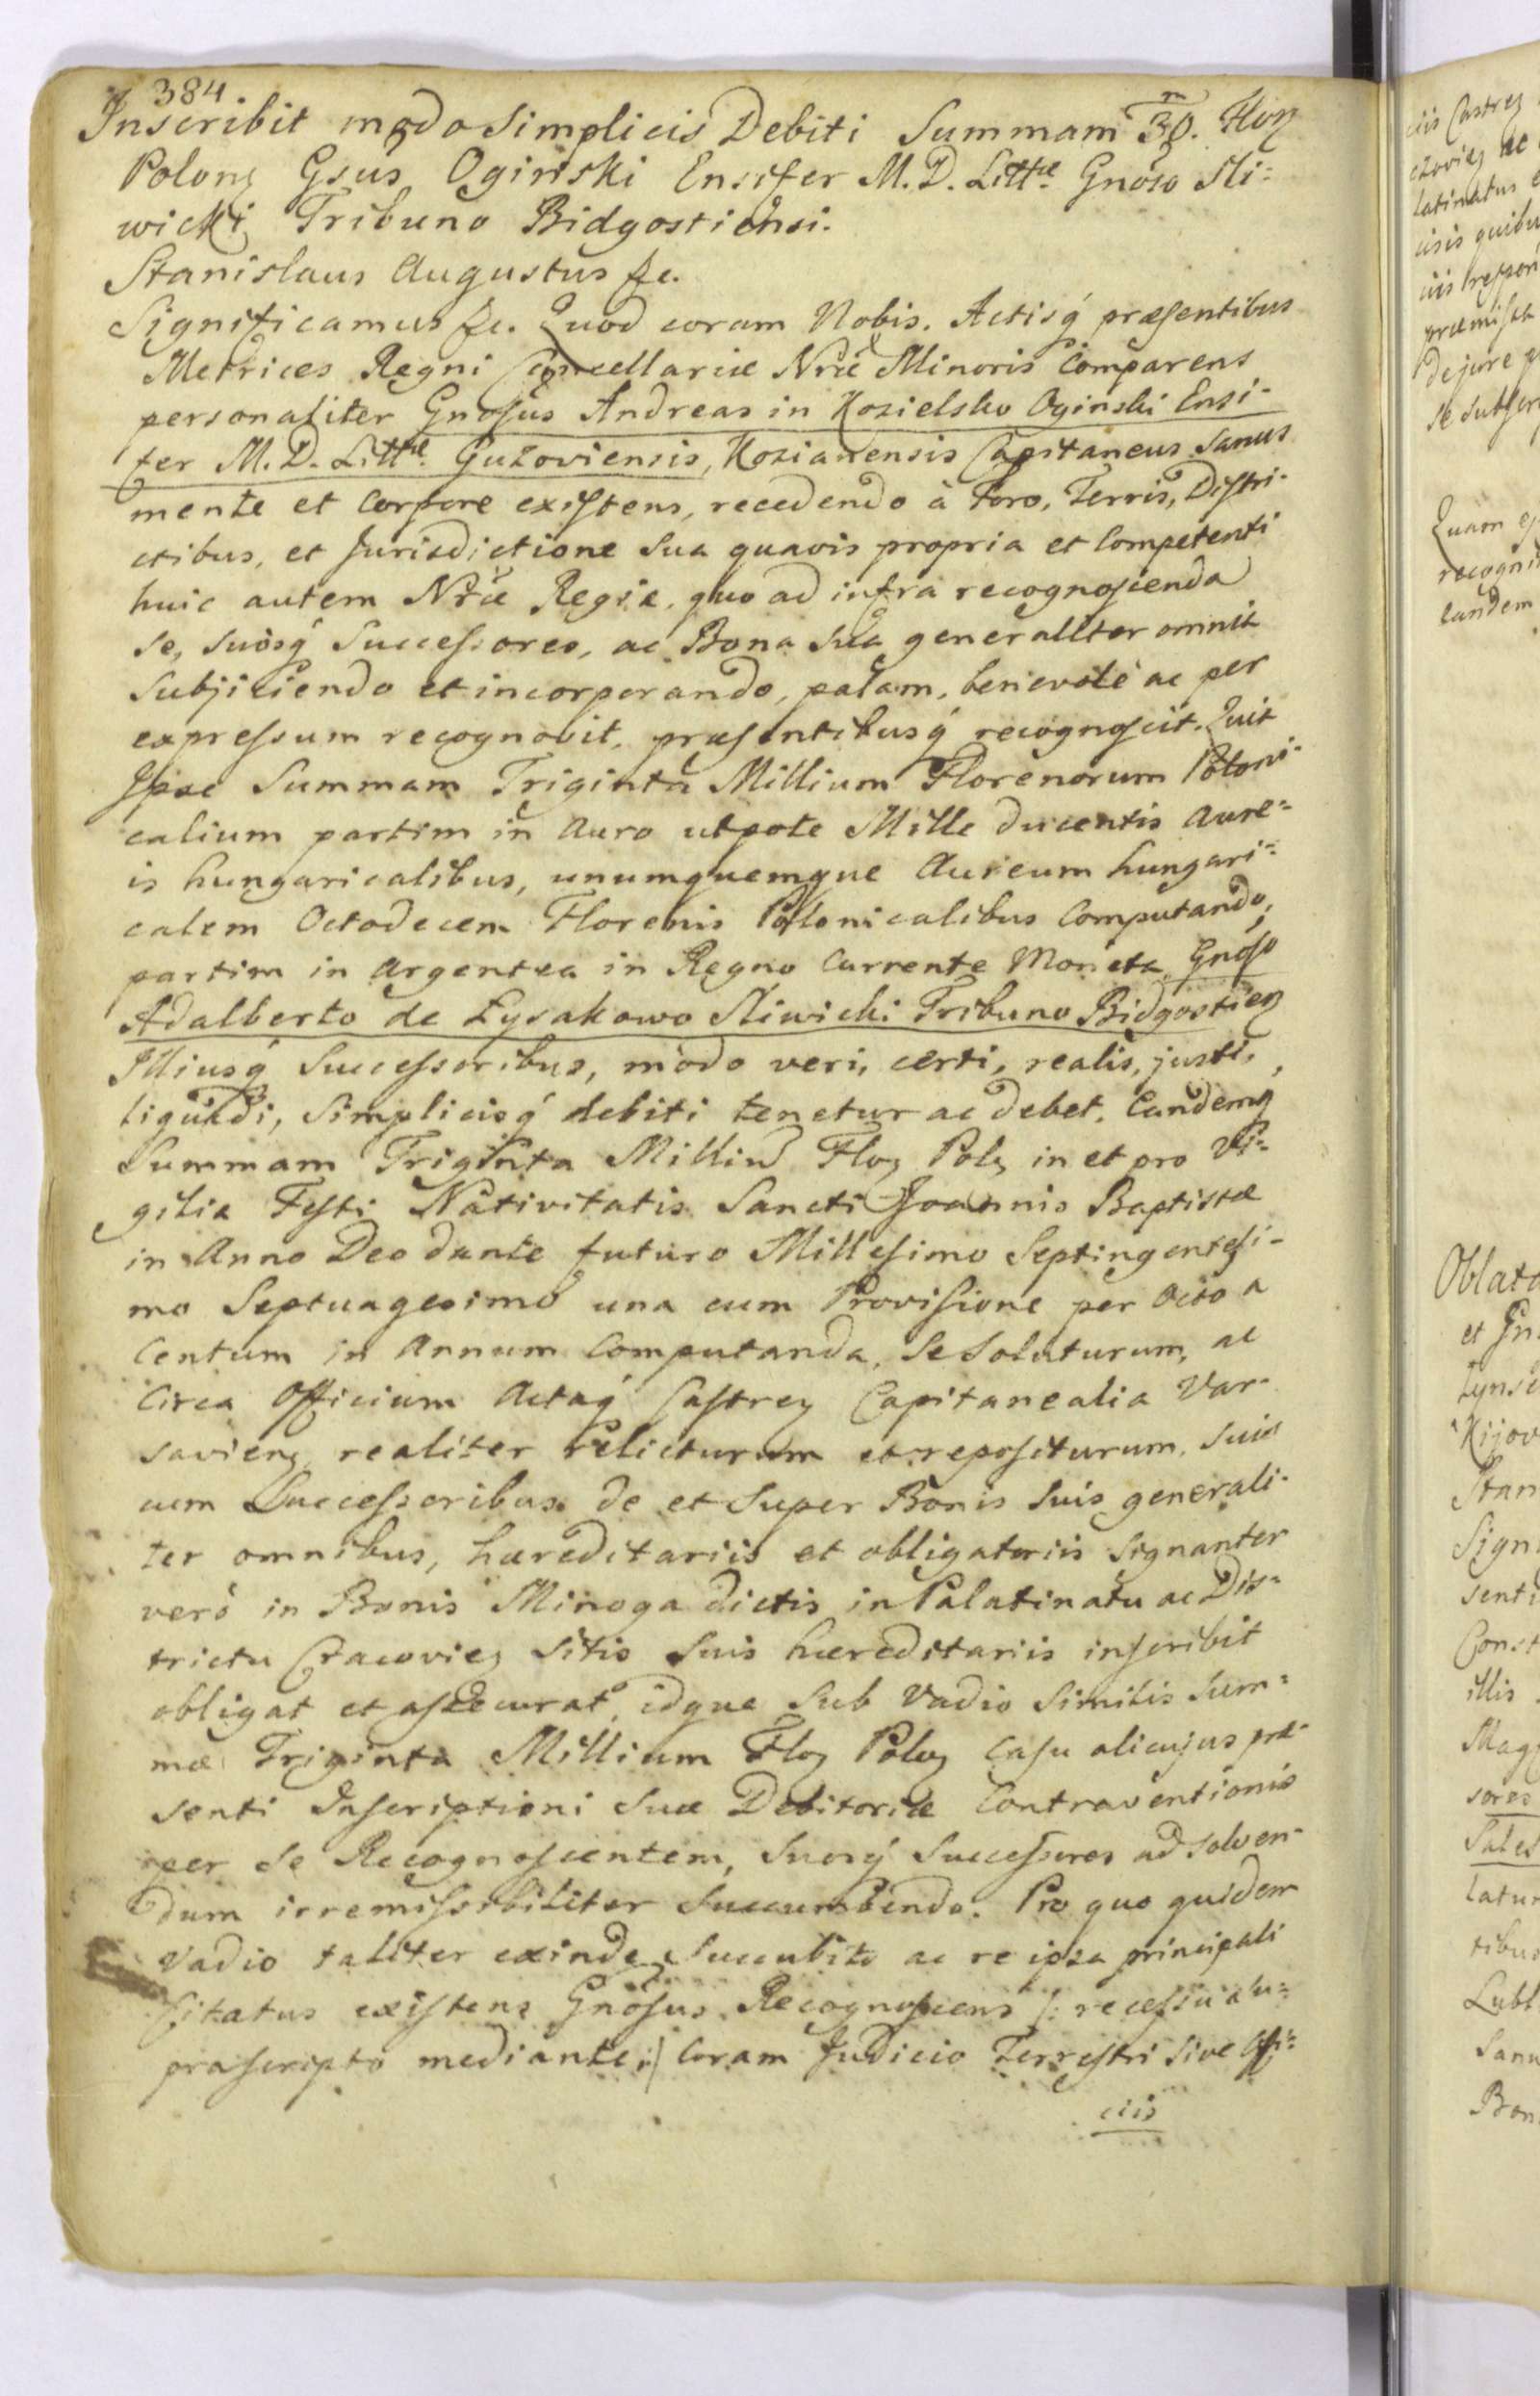 384
Inscribit modo Simplicis Debiti Summam 30.m Flor
Polon Gsus Oginski Ensifer M. D. Littæ. Gnoso Sli=
wicki Tribuno Bidgostiensi.
Stanislaus Augustus &c.
Significamus &c. Quod coram Nobis. Actisq́ præsentibus
Metrices Regni Cancellariæ Nræ Minoris Comparens
personaliter Gnosus Andreas in Kozielsko Oginski Ensi-
fer M. D. Littæ. Guzoviensis, Kozianensis Capitaneus Sanus
mente et Corpore existens, recedendo à Foro, Terris, Distri-
ctibus, et Jurisdictione Sua quavis propria et Competenti
huic autem Nræ Regiæ, quo ad infra recognoscenda
se, suosq́ Successores, ac Bona Sua generaliter omnia
Subjiciendo et incorporando, palam, benevolè ac per
expressum recognovit, præsentibusq́ recognoscit. Quia
Ipse Summam Triginta Millium Florenorum Poloni-
calium partim in Auro utpote Mille ducentis Aure=
is hungaricalibus, unumquemque Aureum hungari=
calem Octodecem Florenis Polonicalibus Computando,
partim in Argentea in Regno Currente Moneta Gnoso
Adalberto de Łysakowo Sliwicki Tribuno Bidgostien
Illiusq́ Successoribus, modo veri, certi, realis, justi,
liquidi, Simplicisq́ debiti tenetur ac debet. Eandemq
Summam Triginta Milliu Flo Pol in et pro Vi=
gilia Festi Nativitatis Sancti Joannis Baptistæ
in Anno Deo dante futuro Millesimo Septingentesi-
mo Septuagesimo una cum Provisione per Octo a
Centum in Annum Computanda, Se Soluturum, ac
Circa Officium Actaq́ Castren Capitanealia Var-
savien realiter relicturum et repositurum, suis
cum Successoribus de et Super Bonis Suis generali-
ter omnibus, hæreditariis et obligatoriis Signanter
verò in Bonis Minoga dictis in Palatinatu ac Dis=
trictu Cracovien Sitis Suis hæreditariis inscribit
obligat et assecurat, idque Sub Vadio Similis Sum=
mæ Triginta Millium Flo Polo Casu alicujus præ-
senti Inscriptioni Suæ Debitoriæ Contraventionis
per Se Recognoscentem, Suosq́ Successores ad solven-
dum irremissibiliter Succumbendo. Pro quo quidem
Vadio taliter exinde Succubito ac re ipsa principali
Citatus existens Gnosus Recognoscens /: recessu a su=
præscripto mediante :/ Coram Judicio Terrestri Sive Offi=
ciis